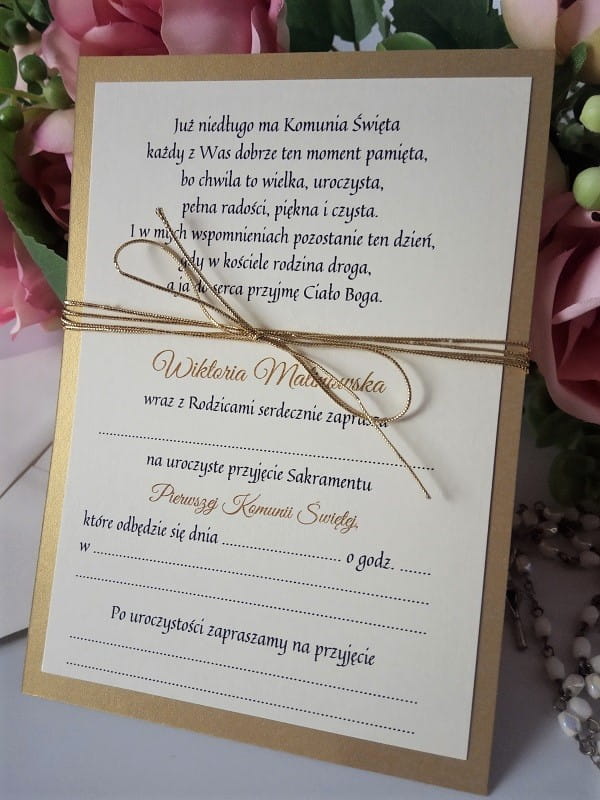 Już niedługo ma Komunia Święta
każdy z Was dobrze ten moment pamięta,
bo chwila to wielka, uroczysta,
pełna radości, piękna i czysta.
I w mych wspomnieniach pozostanie ten dzień,
gdy w kościele rodzina droga,
a ja do serca przyjmę Ciało Boga.
Wiktoria Malinowska
wraz z Rodzicami serdecznie zaprasza
..............................
na uroczyste przyjęcie Sakramentu
Pierwszej Komunii Świętej,
które odbędzie się dnia .............................. o godz. .......
w ..............................
..............................
..............................
Po uroczystości zapraszamy na przyjęcie
..............................
..............................